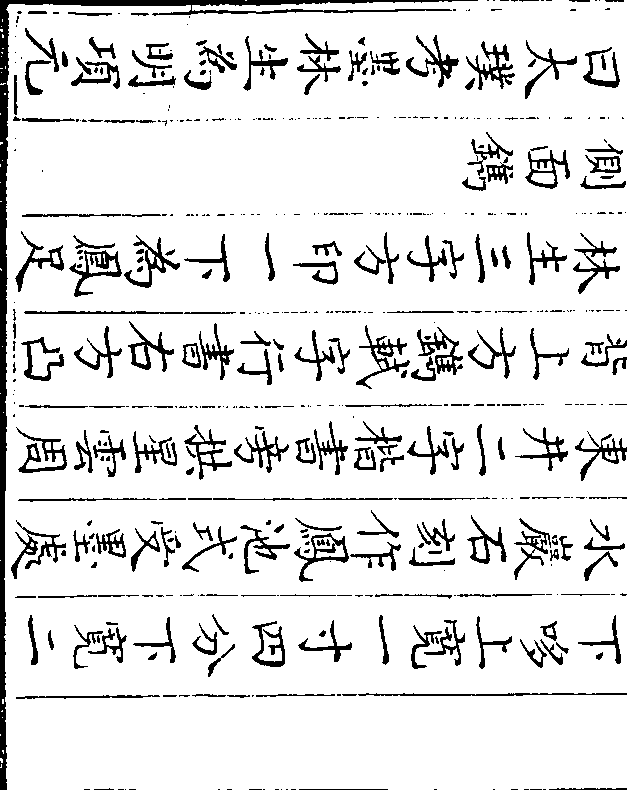 下哆上寬一寸四分下寬二
水巖石刻作鳳池式受墨處
東井二字楷書旁拱星雲周
背上方鐫載字行書右方凸
林生三字方印一下為鳳足
側面鐫
曰太璞考墨林生為明項元